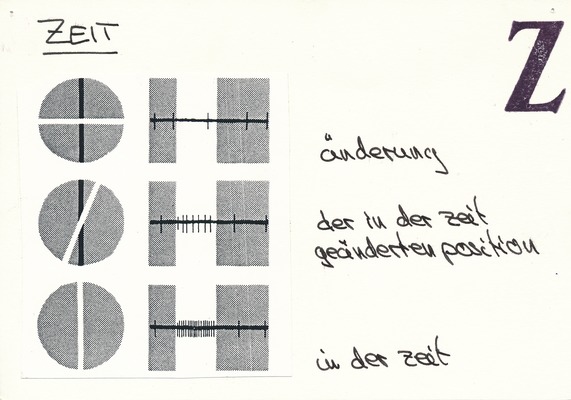 ZEIT
Z
änderung
der in der zeit
geänderten position
in der zeit